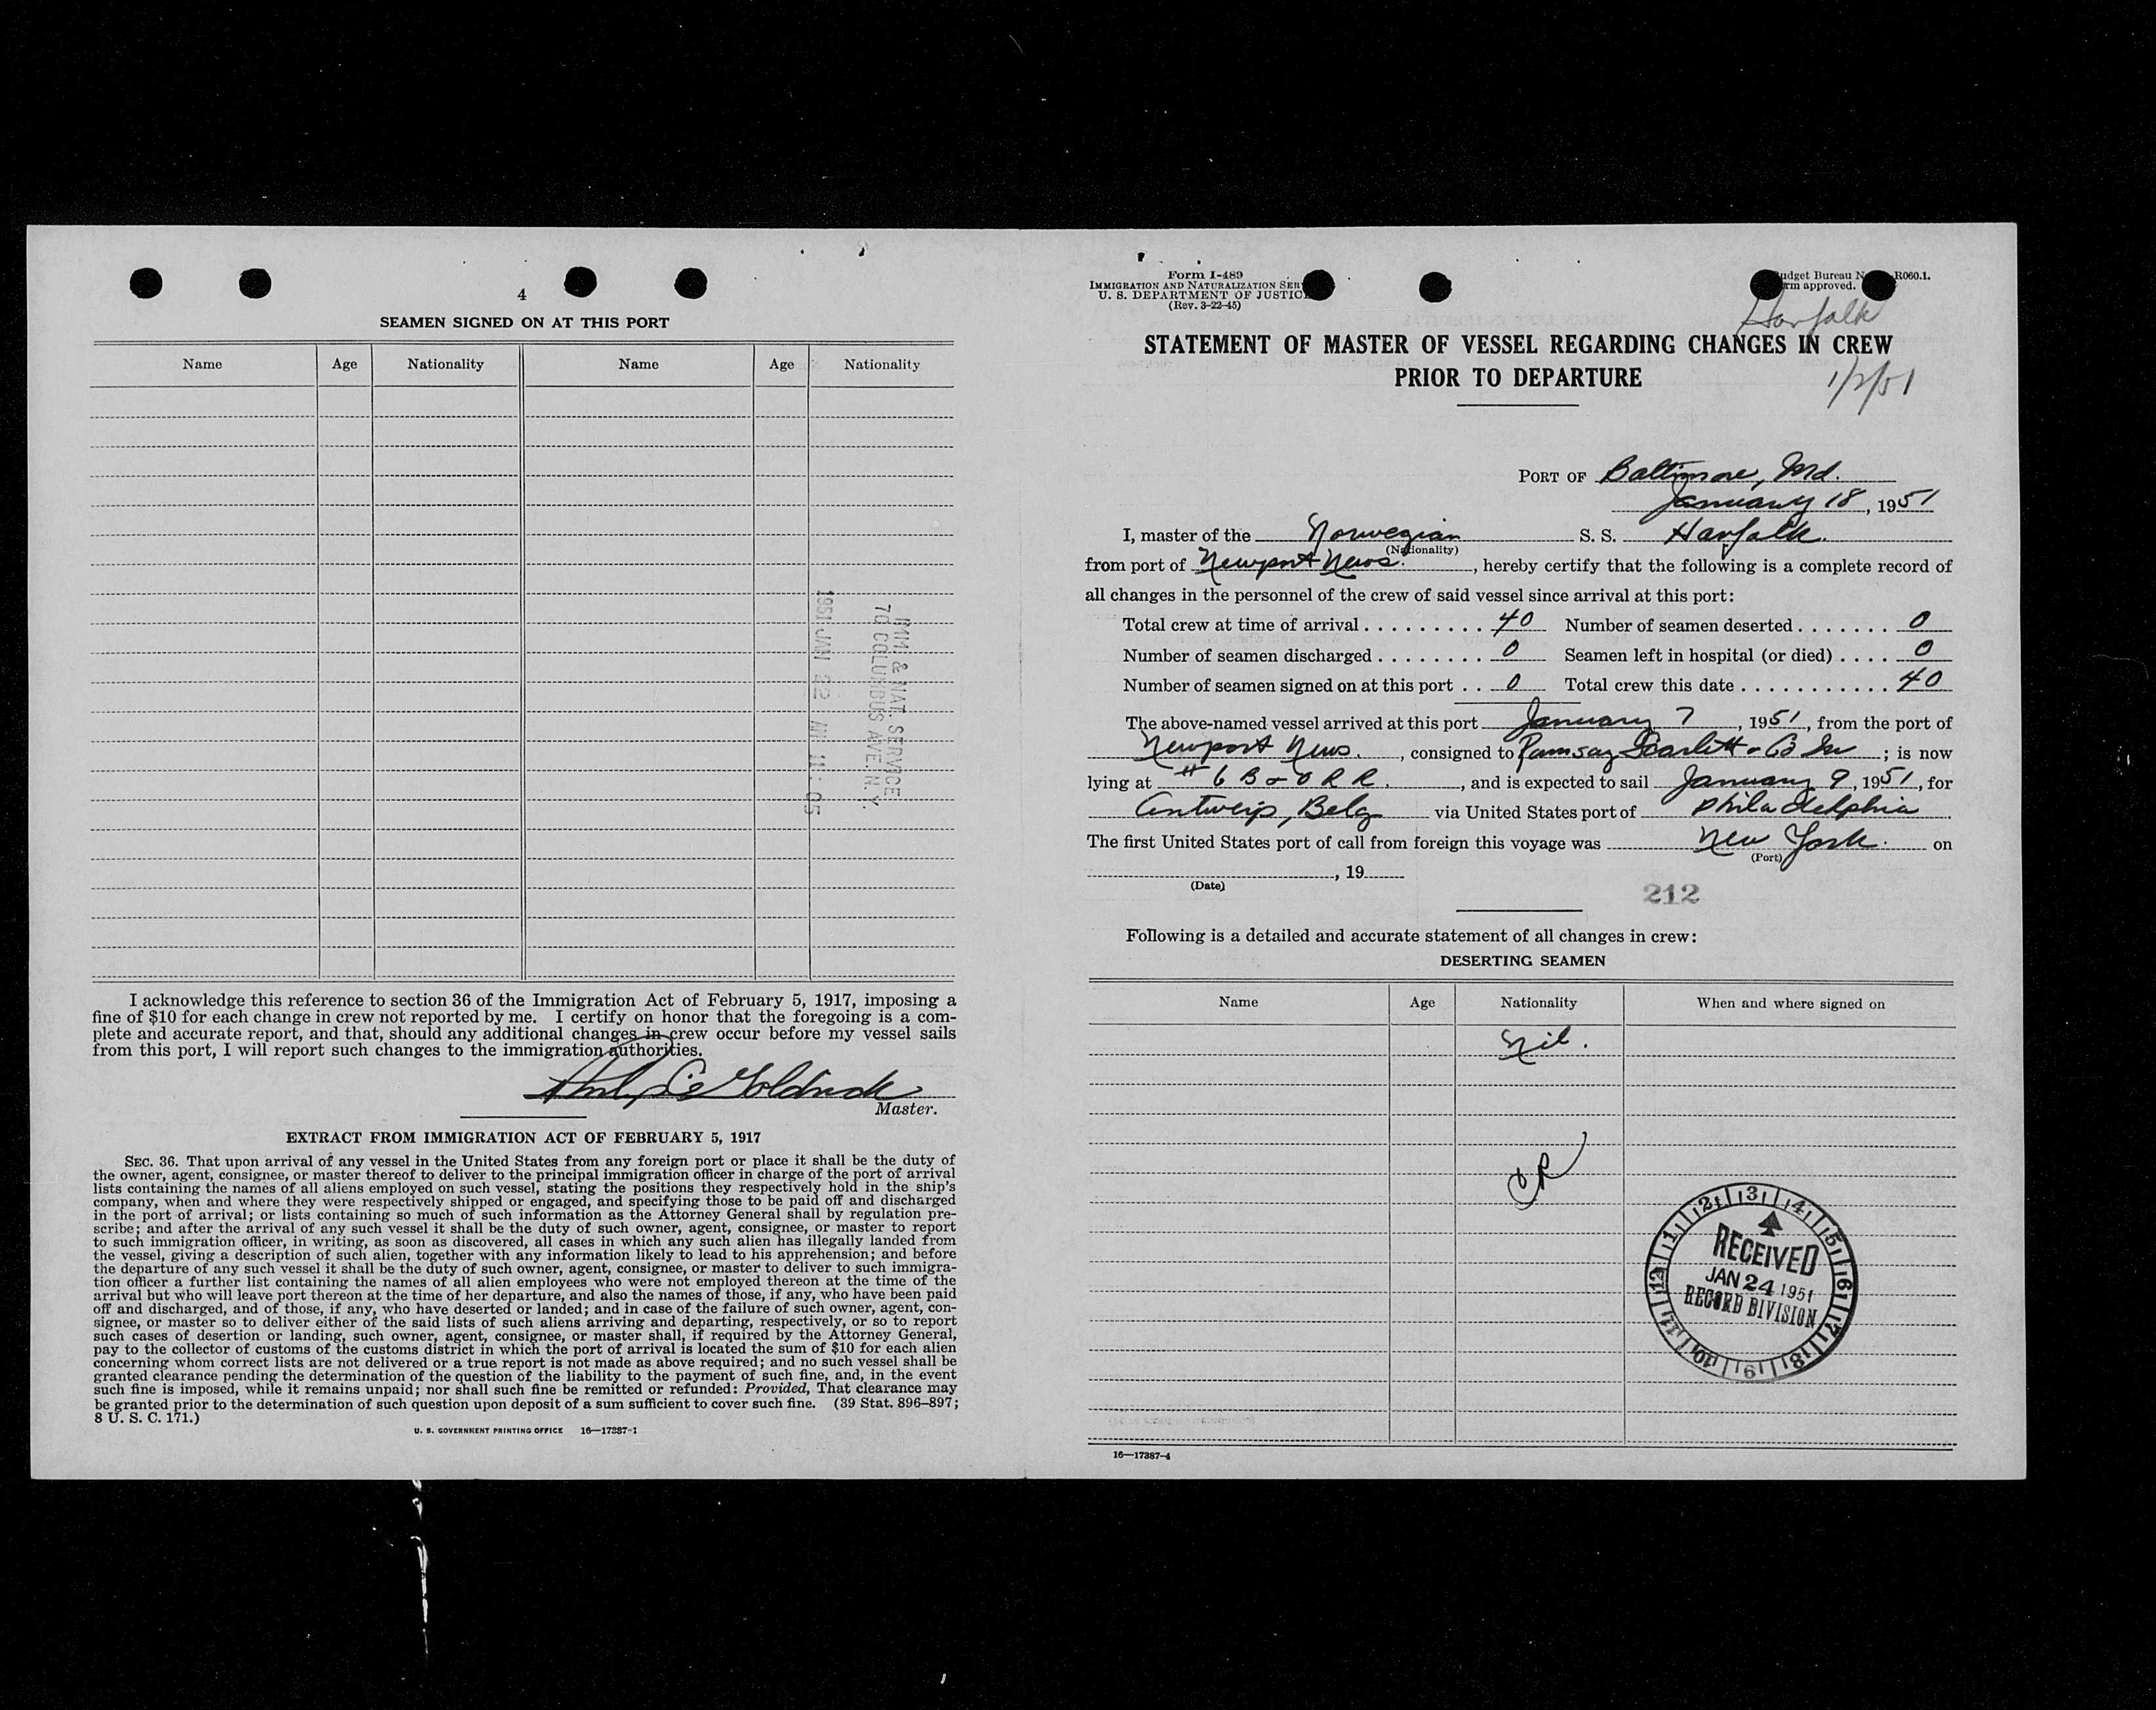 4
SEAMEN SIGNED ON AT THIS PORT
Name Age Nationality Name Age Nationality
IMM. & NAT. SERVICE
70 COLUMBUS AVE. N.Y.
1951 JAN 22 AM 11:05
I acknowledge this reference to section 36 of the Immigration Act of February 5, 1917, imposing a
fine of $10 for each change in crew not reported by me. I certify on honor that the foregoing is a com-
plete and accurate report, and that, should any additional changes in crew occur before my vessel sails
from this port, I will report such changes to the immigration authorities.
Master.
EXTRACT FROM IMMIGRATION ACT OF FEBRUARY 5, 1917
SEC. 36. That upon arrival of any vessel in the United States from any foreign port or place it shall be the duty of
the owner, agent, consignee, or master thereof to deliver to the principal immigration officer in charge of the port of arrival
lists containing the names of all aliens employed on such vessel, stating the positions they respectively hold in the ship's
company, when and where they were respectively shipped or engaged, and specifying those to be paid off and discharged
in the port of arrival; or lists containing so much of such information as the Attorney General shall by regulation pre-
scribe; and after the arrival of any such vessel it shall be the duty of such owner, agent, consignee, or master to report
to such immigration officer, in writing, as soon as discovered, all cases in which any such alien has illegally landed from
the vessel, giving a description of such alien, together with any information likely to lead to his apprehension; and before
the departure of any such vessel it shall be the duty of such owner, agent, consignee, or master to deliver to such immigra-
tion officer a further list containing the names of all alien employees who were not employed thereon at the time of the
arrival but who will leave port thereon at the time of her departure, and also the names of those, if any, who have been paid
off and discharged, and of those, if any, who have deserted or landed; and in case of the failure of such owner, agent, con-
signee, or master so to deliver either of the said lists of such aliens arriving and departing, respectively, or so to report
such cases of desertion or landing, such owner, agent, consignee, or master shall, if required by the Attorney General,
pay to the collector of customs of the customs district in which the port of arrival is located the sum of $10 for each alien
concerning whom correct lists are not delivered or a true report is not made as above required; and no such vessel shall be
granted clearance pending the determination of the question of the liability to the payment of such fine, and, in the event
such fine is imposed, while it remains unpaid; nor shall such fine be remitted or refunded: Provided, That clearance may
be granted prior to the determination of such question upon deposit of a sum sufficient to cover such fine. (39 Stat. 896–897;
8 U. S. C. 171.)
U. S. GOVERNMENT PRINTING OFFICE 16—17387-1
Form I-489
IMMIGRATION AND NATURALIZATION SER
U. S. DEPARTMENT OF JUSTIC
(Rev. 3-22-45)
udget Bureau N R060.1.
rm approved.
Harfalk
STATEMENT OF MASTER OF VESSEL REGARDING CHANGES IN CREW
PRIOR TO DEPARTURE
1/2/51
PORT OF Baltimore, Md.
January 18, 1951
I, master of the Norwegian S. S. Havfalk.
(Nationality)
from port of Newport News., hereby certify that the following is a complete record of
all changes in the personnel of the crew of said vessel since arrival at this port:
Total crew at time of arrival . . . . . . . . . 40 Number of seamen deserted . . . . . . . 0
Number of seamen discharged . . . . . . . . 0 Seamen left in hospital (or died) . . . . 0
Number of seamen signed on at this port . . 0 Total crew this date . . . . . . . . . . . 40
The above-named vessel arrived at this port January 7, 1951, from the port of
Newport News., consigned to Ramsay Scarlett & Co Inc; is now
lying at # 6 B & O R R., and is expected to sail January 9, 1951, for
Antwerp, Belg via United States port of Philadelphia.
The first United States port of call from foreign this voyage was New York. on
(Port)
, 19
(Date)
212
Following is a detailed and accurate statement of all changes in crew:
DESERTING SEAMEN
Name Age Nationality When and where signed on
Nil.
RECEIVED
JAN 24 1951
RECORD DIVISION
1 2 3 4 5 6 7 8 9 10 11 12
16—17387-4